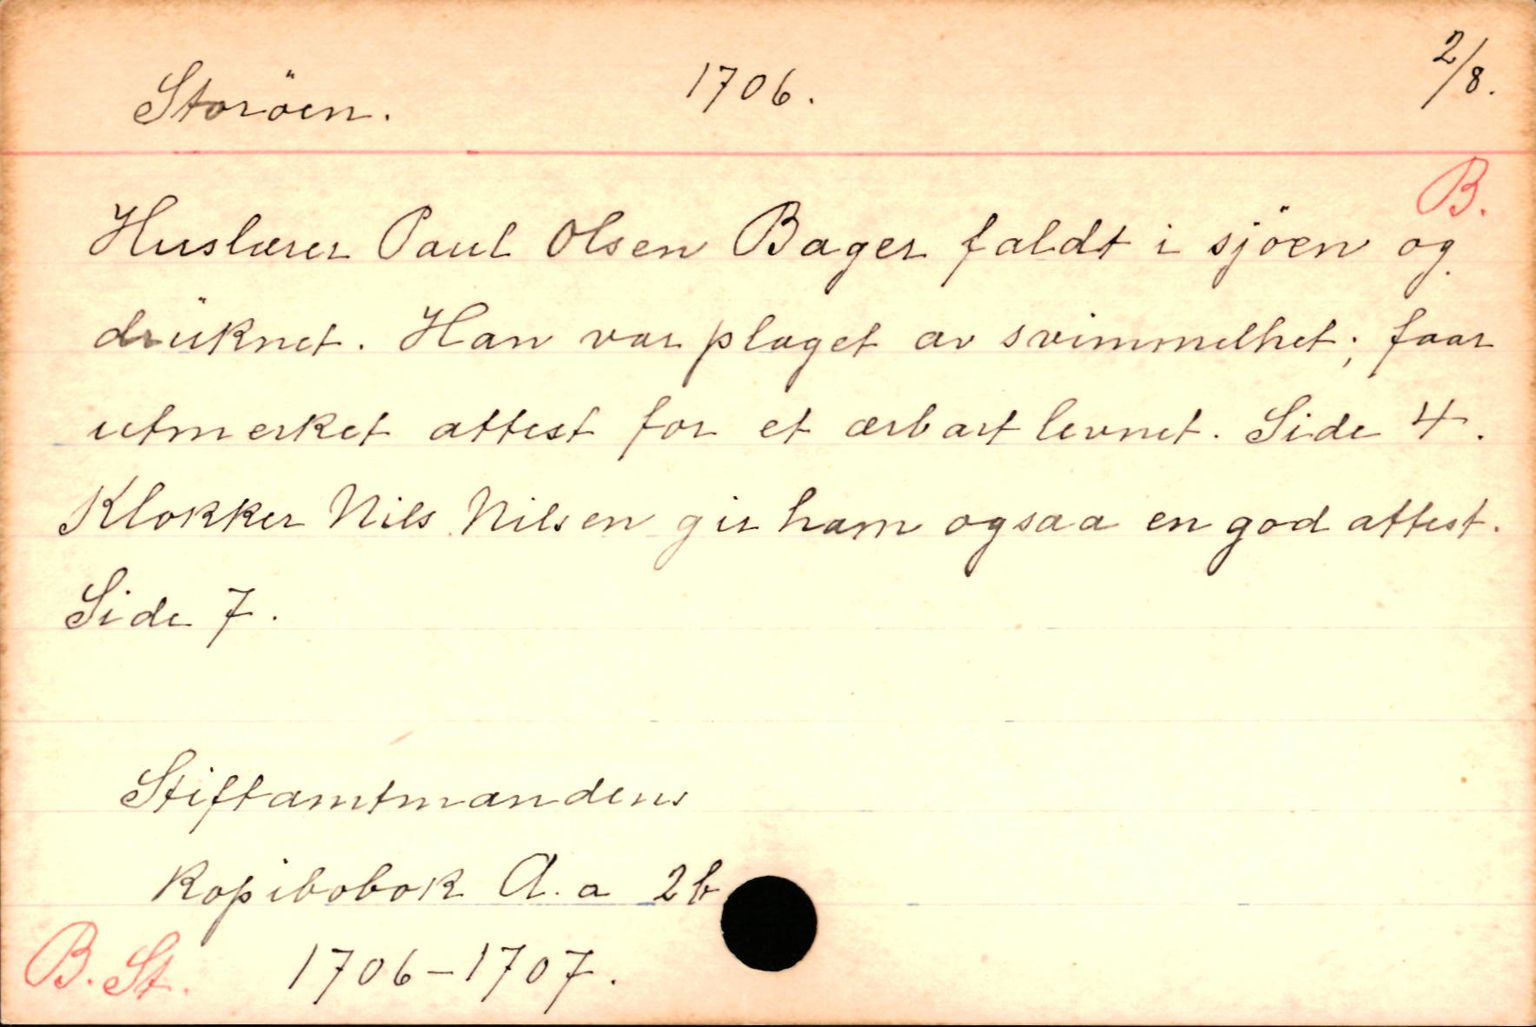 Storöen. 1706. 2/8.
B.
Huslærer Paul Olsen Bager faldt i sjöen og
drüknet. Han var plaget av svimmelhet; faar
utmerket attest for et ærbart levnet. Side 4.
Klokker Nils Nilsen gir ham ogsaa en god attest.
Side 7.
Stiftamtmandens
Kopibobok A. a 2b
B. St. 1706-1707.